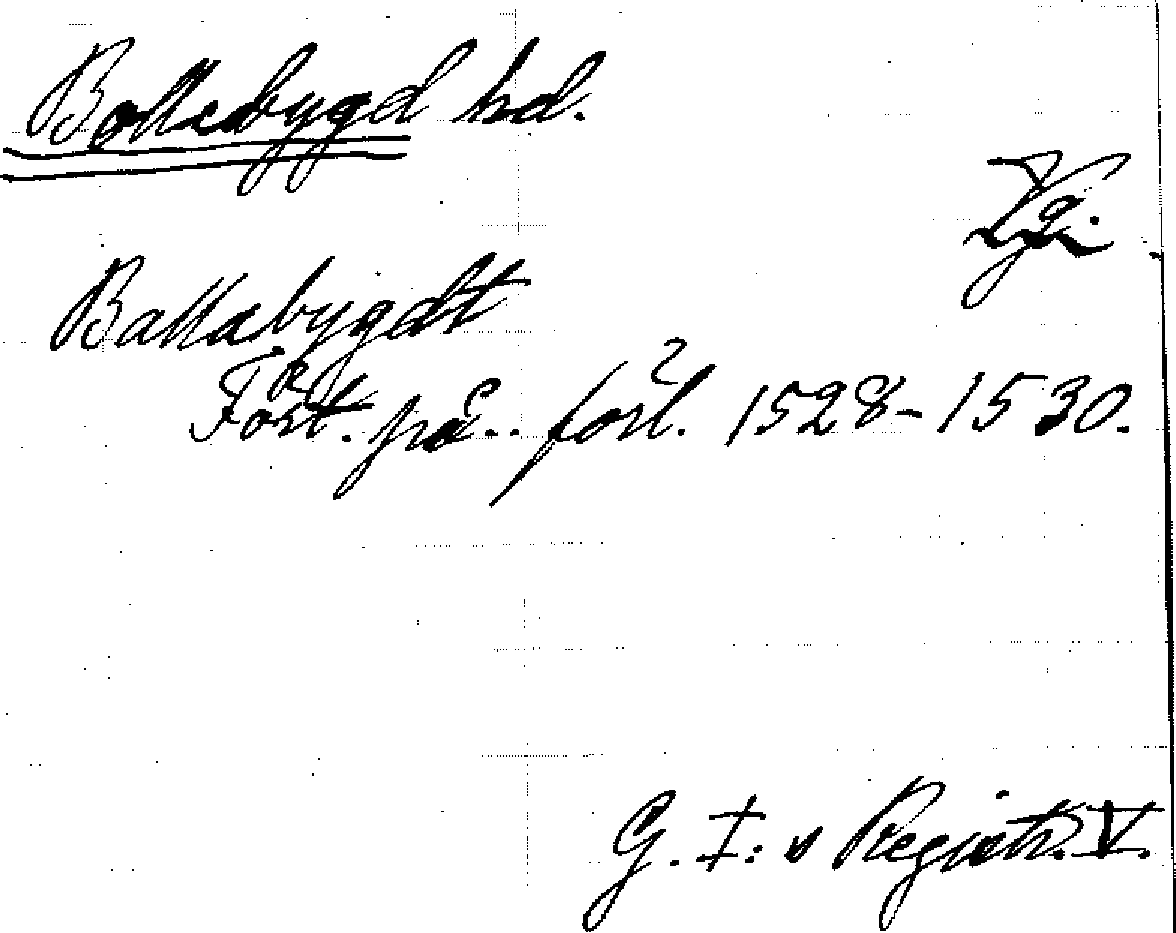 Bollebygd hd.
Vg.
Ballabygdt
Fört. på.. förl. 1528-1530.
G. I:s Registr. V.